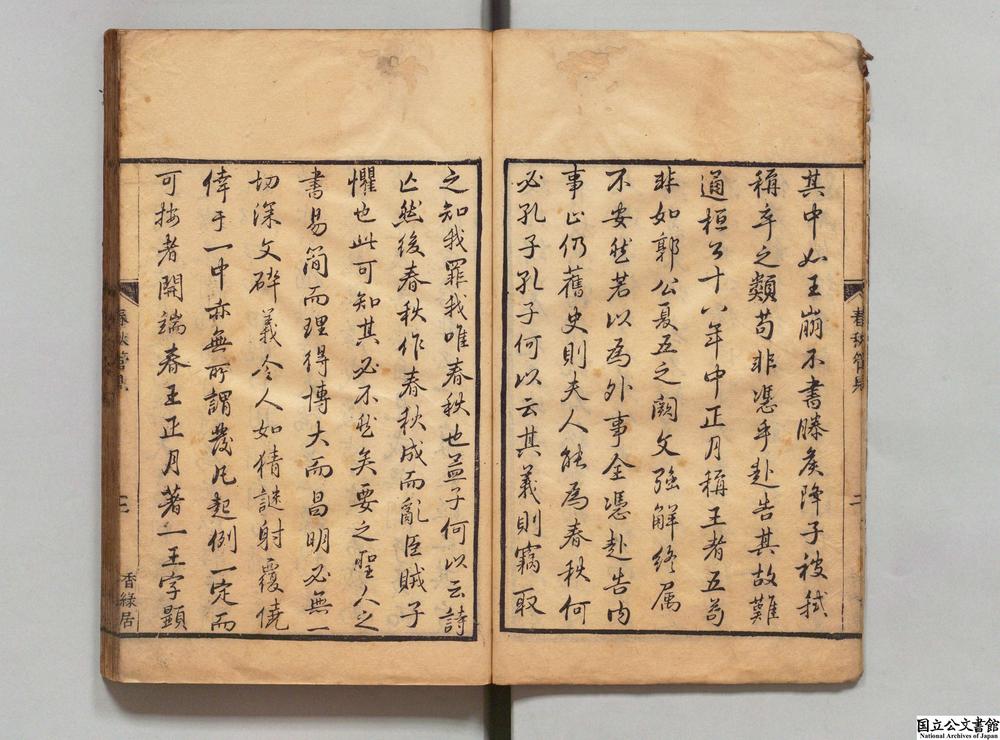 其中如王崩不書滕矦降子被弒
稱卒之類苟非憑乎赴告其故難
通桓公十八年中正月稱王者五苟
非如郭公夏五之闕文強解終属
不安然若以為外事全憑赴告内
事止仍舊史則夫人能為春秋何
必孔子孔子何以云其義則竊取
之知我罪我唯春秋也孟子何以云詩
亡然後春秋作春秋成而亂臣賊子
懼也此可知其必不然矣要之聖人之
書易簡而理得博大而昌明必無一
切深文碎義令人如猜謎射覆僥
倖于一中亦無所謂發凡起例一定而
可按者開端春王正月著一王字顯
春秋管見
二
春秋管見
三
香緑居
国立公文書館
National Archives of Japan